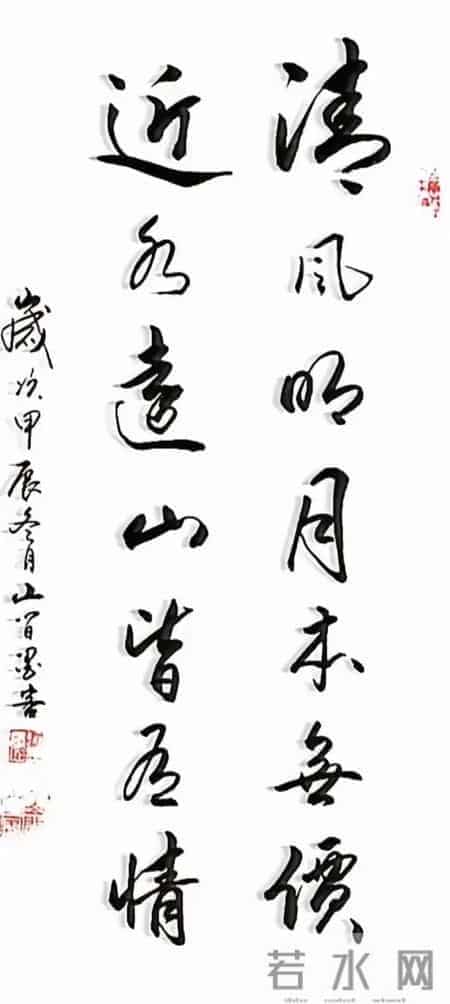 清风明月本無價
近水遠山皆有情
歲次甲辰冬月山
若水网